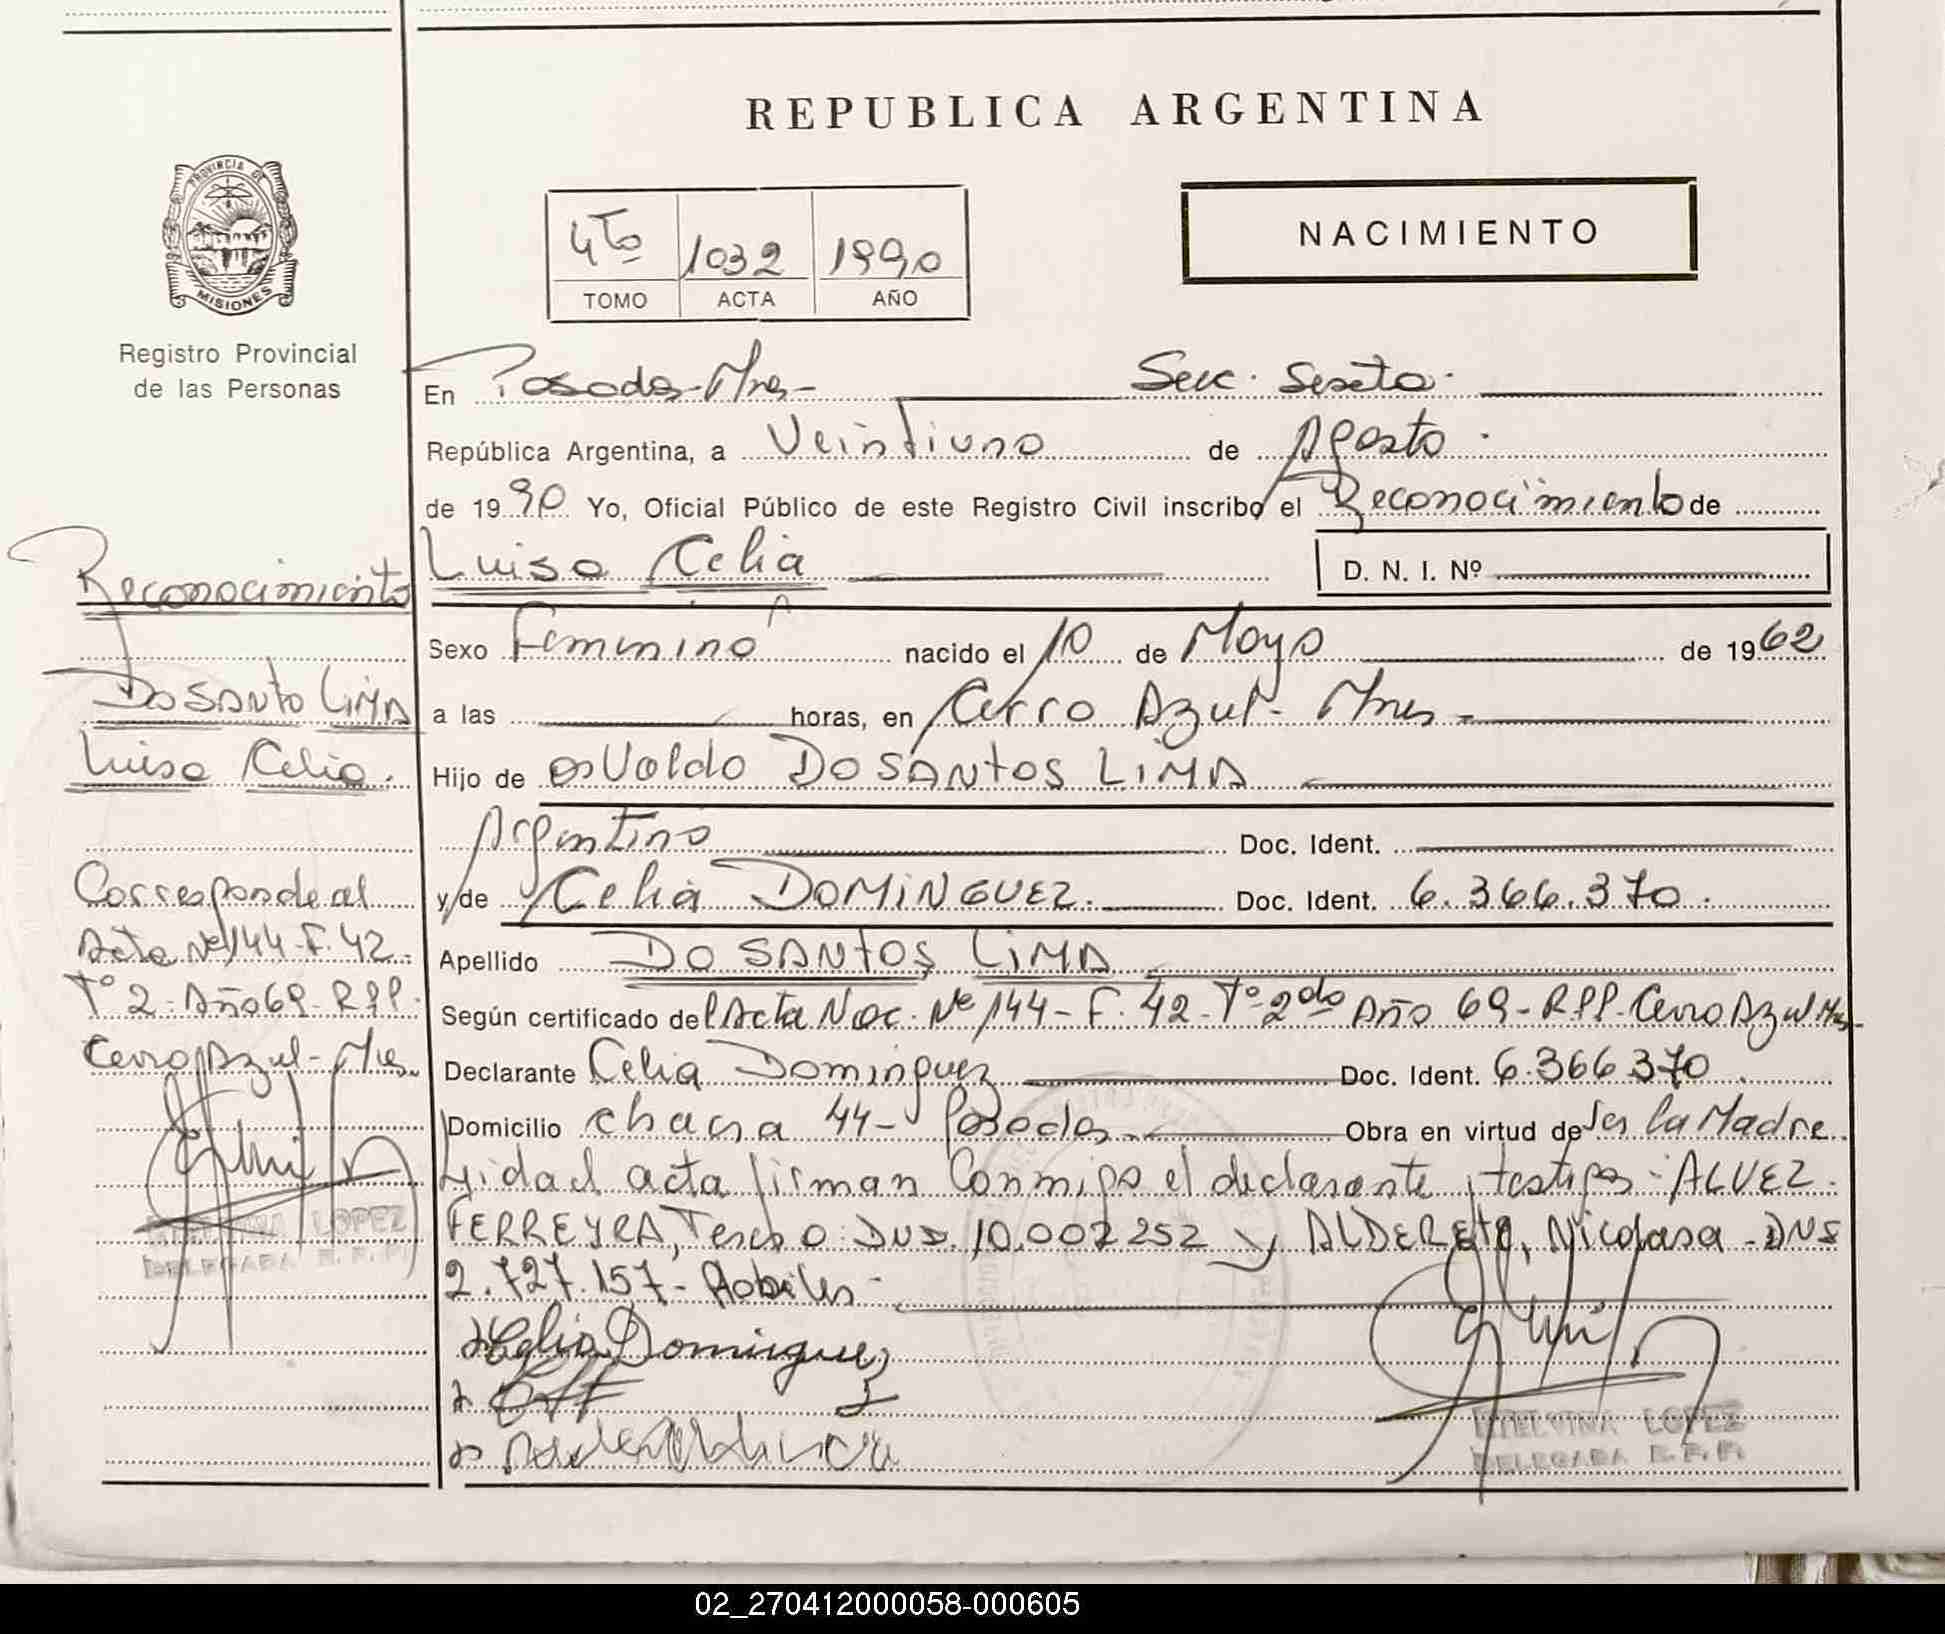 REPUBLICA ARGENTINA
PROVINCIA DE MISIONES
Registro Provincial
de las Personas
4to 1032 1990
TOMO ACTA AÑO
NACIMIENTO
En Posadas-Mnes- Secc. Sexta.
República Argentina, a Veintiuno de Agosto.
de 1990 Yo, Oficial Público de este Registro Civil inscribo el Reconocimiento de
Luisa Celia D. N. I. Nº
Sexo Femenino nacido el 10 de Mayo de 1962
a las horas, en Cerro Azul- Mnes-
Hijo de osValdo DO SANtOS LiMA
Argentino Doc. Ident.
y de Celia DOMiNGUEZ. Doc. Ident. 6.366.370.
Apellido DO SANtOS LiMA
Según certificado del Acta Nac. Nº 144- F. 42- Tº 2do Año 69- RPP. Cerro Azul Mnes-
Declarante Celia Dominguez Doc. Ident. 6.366.370
Domicilio chacra 44- Posadas. Obra en virtud de ser la Madre.
Lidad acta firman Conmigo el declarante y testigos: ALVEZ
FERREYRA, 10.007252 y ALDERETE, Nicolasa - DNI
2.727.157- Habiles-
Celia Dominguez
ETELVINA LOPEZ
DELEGADA R.P.P.
Reconocimiento
DO SANTO LiMA
Luisa Celia.
Corresponde al
Acta Nº 144- F. 42-
Tº 2- Año 69- RPP.
Cerro Azul- Mnes.
ETELVINA LOPEZ
DELEGADA R.P.P.
02_270412000058-000605